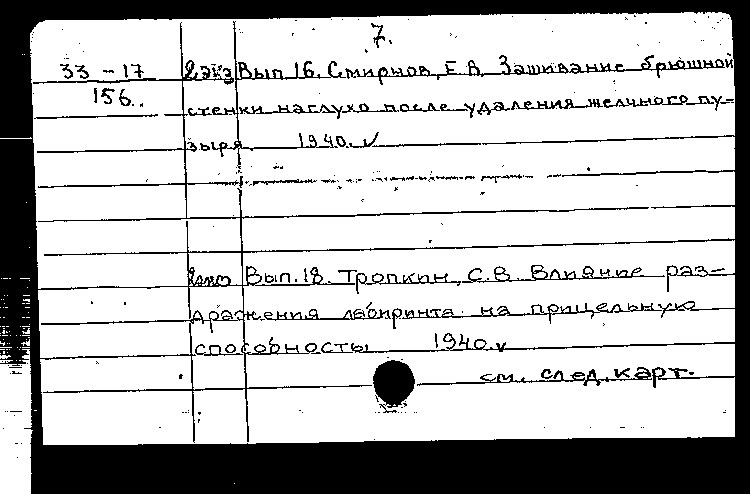 7.
33-17 2 экз Вып 16. Смирнов, Е.В. Зашивание брюшной
156. стенки наглухо после удаления желчного пу-
зыря 1940. v
2 экз Вып. 18. Тропкин, С.В. Влияние раз-
дражения лабиринта на прицельную
способность 1940. v
см. след. карт.